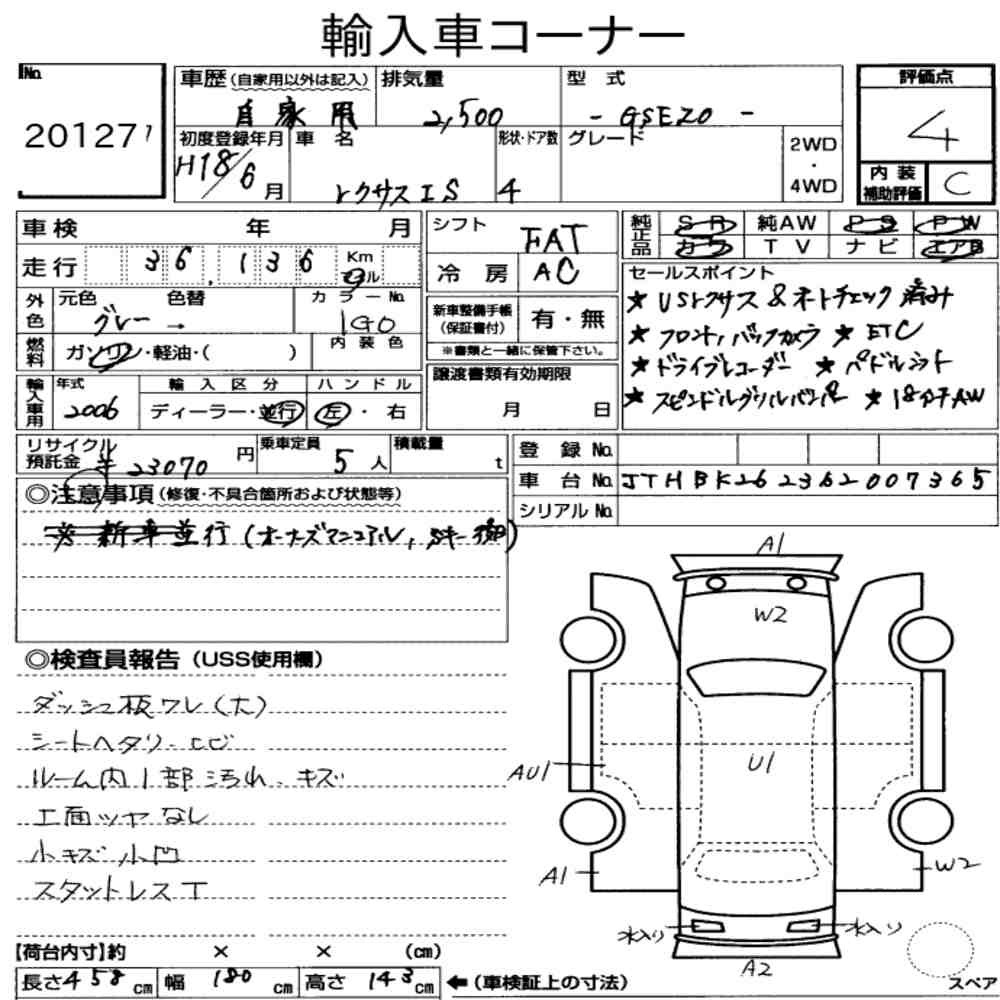 輸入車コーナー
No. 20127
車歴 (自家用以外は記入) 自家用
排気量 2,500
型式 - GSE20 -
評価点 4
初度登録年月 H18/6 月
車名 レクサス IS
形状・ドア数 4
グレード
2WD・4WD
内装補助評価 C
車検 年 月
走行 36,136 Km マイル
外色 元色 グレー → 色替
カラーNo. 1G0
燃料 ガソリン・軽油・( )
内装色
輸入車用 年式 2006
輸入区分 ディーラー・並行
ハンドル 左・右
シフト FAT
冷房 AC
新車整備手帳 (保証書付) 有・無
※書類と一緒に保管下さい。
譲渡書類有効期限 月 日
純正品 SR 純AW PS PW
カワ TV ナビ エアB
セールスポイント
★ USレクサス & オートチェック 済み
★ フロント, バックカメラ ★ ETC
★ ドライブレコーダー ★ パドルシフト
★ スピンドルグリルバンパー ★ 18インチAW
リサイクル預託金 ¥ 23070 円
乗車定員 5 人
積載量 t
登録No.
車台No. JTHBK262362007365
シリアルNo.
◎注意事項 (修復・不具合箇所および状態等)
※ 新車並行 (オーナーズマニュアル, Sキー 後)
◎検査員報告 (USS使用欄)
ダッシュ板ワレ(大)
シートヘタリ・ヒビ
ルーム内1部汚れ・キズ
工面ツヤなし
小キズ小凹
スタットレスT
A1
W2
AU1
U1
A1
W2
水入り
水入り
A2
スペア
【荷台内寸】約 × × (cm)
長さ 458 cm 幅 180 cm 高さ 143 cm ←(車検証上の寸法)